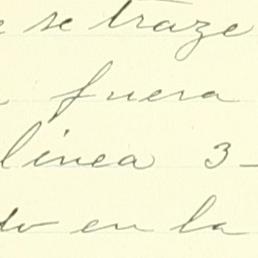 e se traze
fuera
linea 3-
do en la